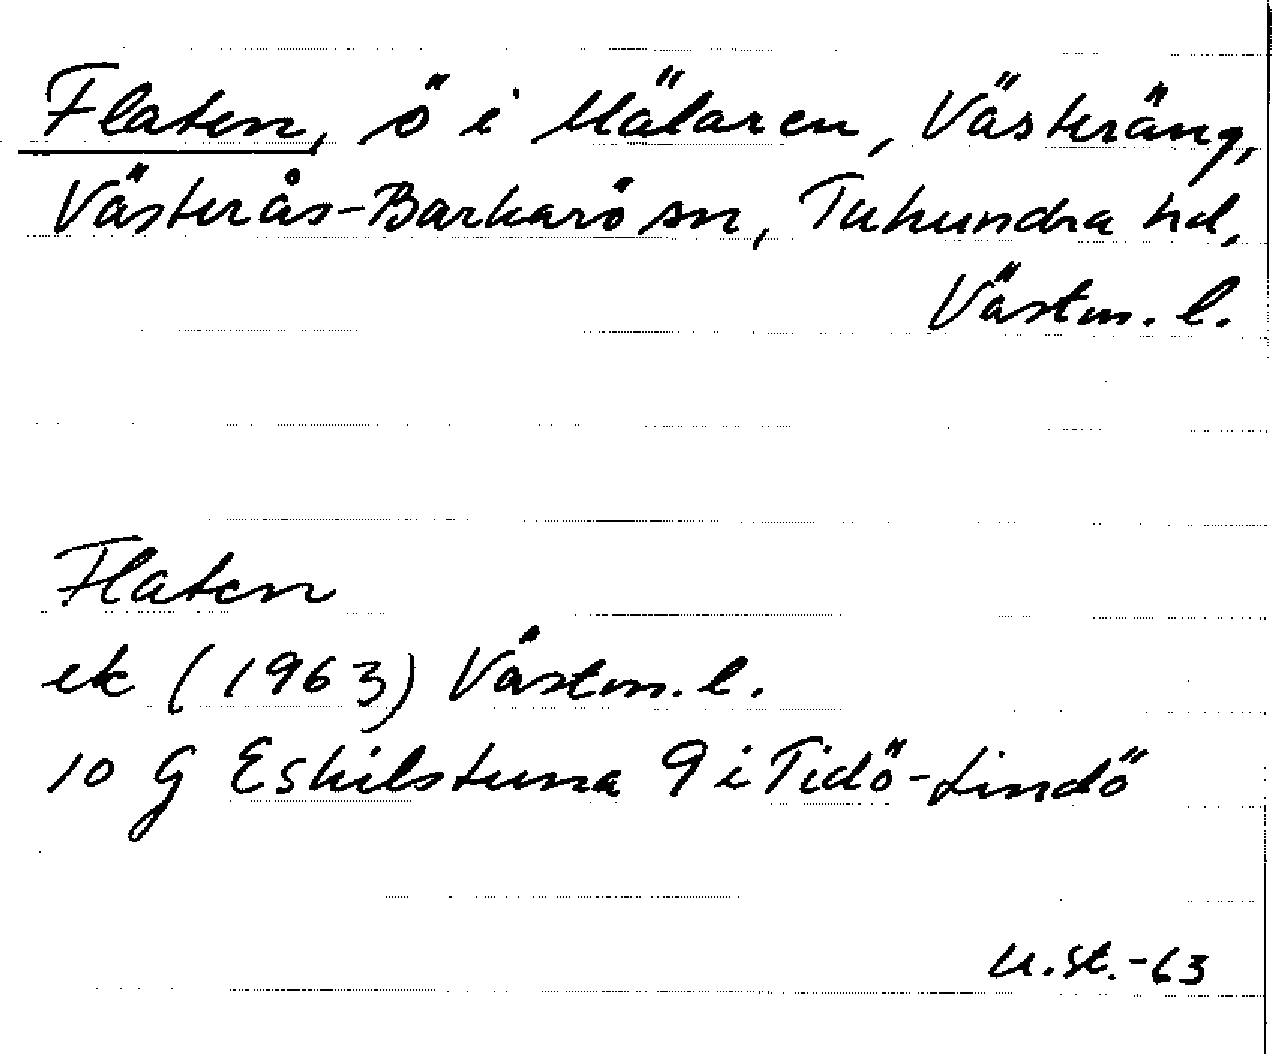 Flaten, ö i Mälaren, Västeräng,
Västerås-Barkarö sn, Tuhundra hd,
Västm. l.
Flaten
ek (1963) Västm. l.
10 G Eskilstuna 9 i Tidö-Lindö
U.St.-63